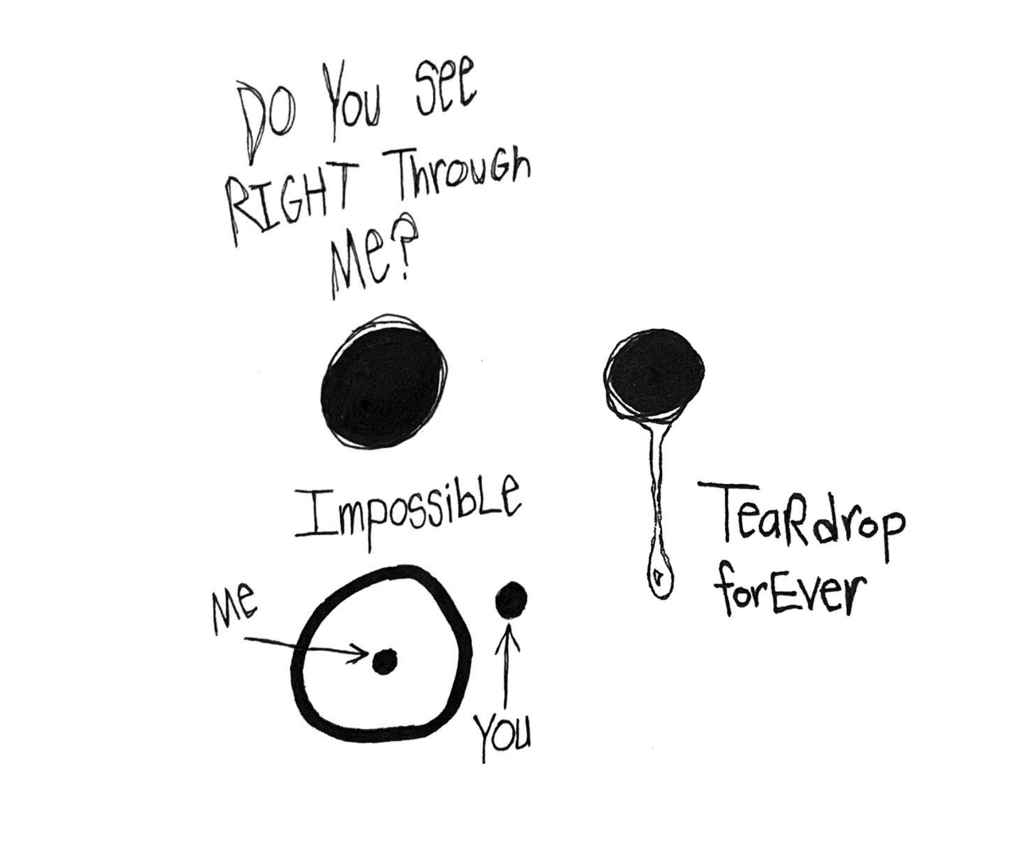 Do You see
RIGHT Through
Me?
ImpossibLe
TeaRdrop
forEver
Me
You